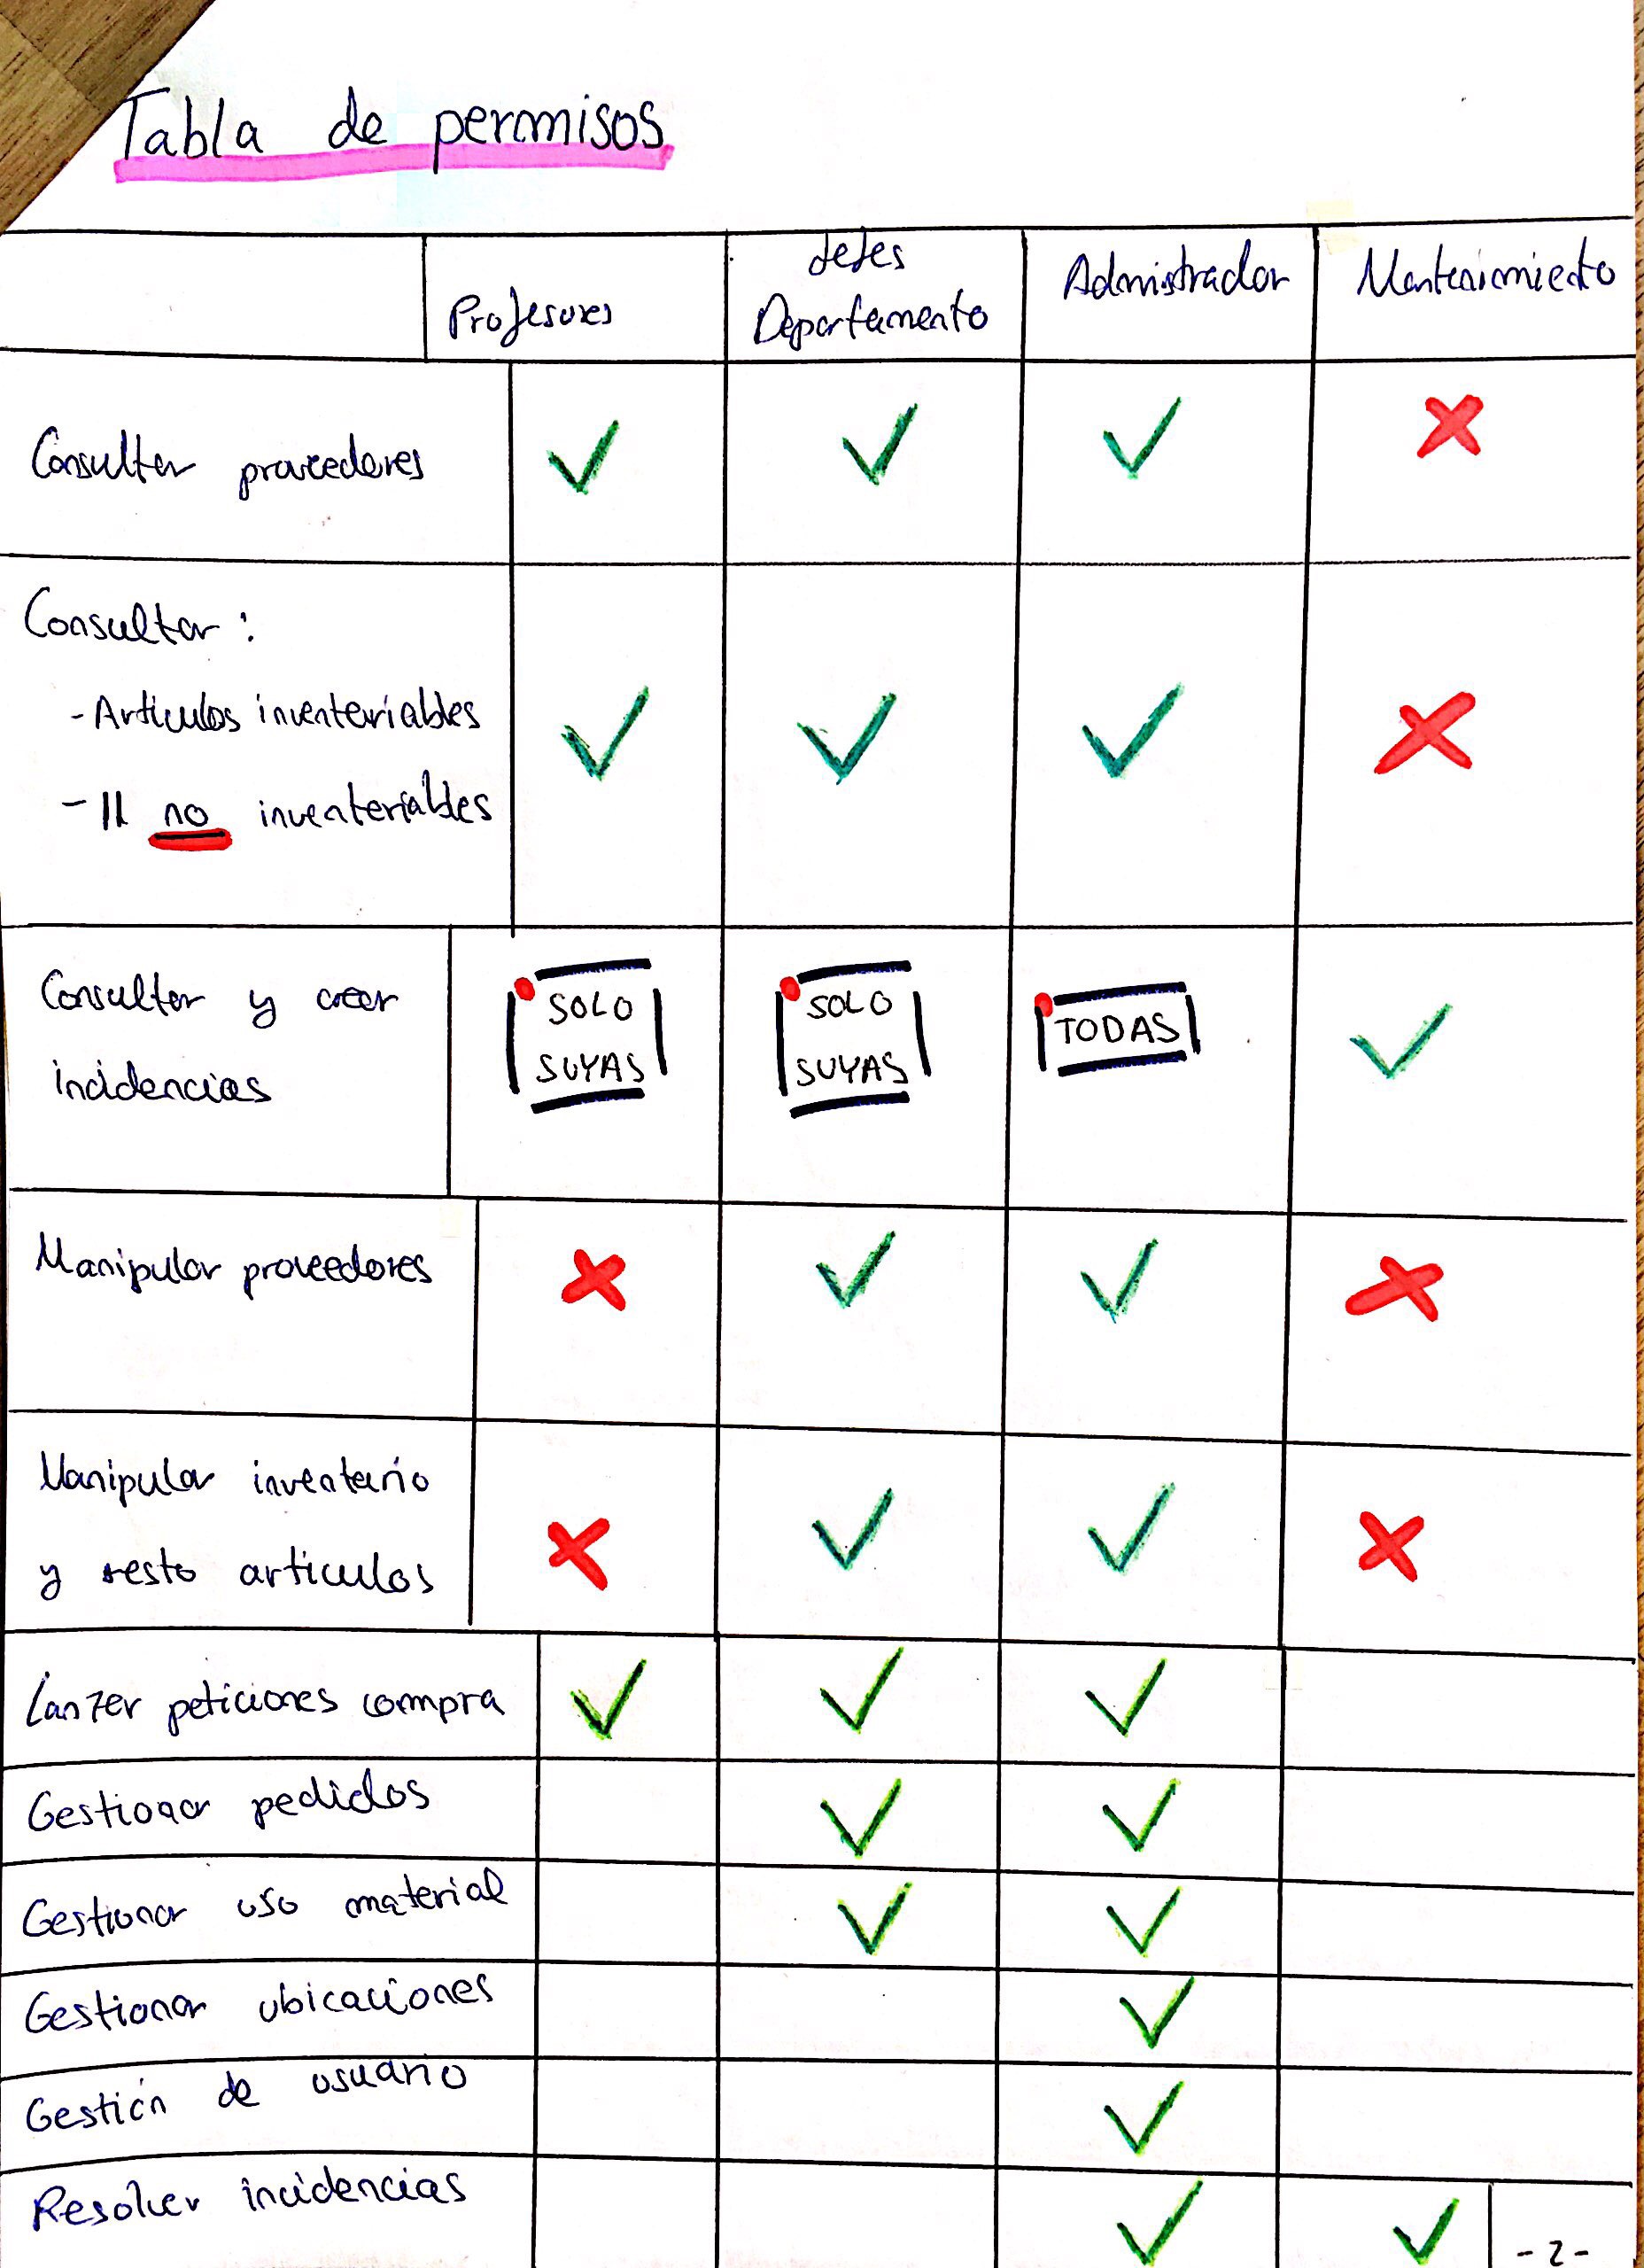 Tabla de permisos
Profesores
Jefes
Departamento
Administrador
Mantenimiento
Consultar proveedores
Consultar :
- Articulos inventariables
- || no inventariables
Consultar y crear
incidencias
SOLO
SUYAS
SOLO
SUYAS
TODAS
Manipular proveedores
Manipular inventario
y resto articulos
Lanzar peticiones compra
Gestionar pedidos
Gestionar uso material
Gestionar ubicaciones
Gestión de usuario
Resolver incidencias
- 2 -